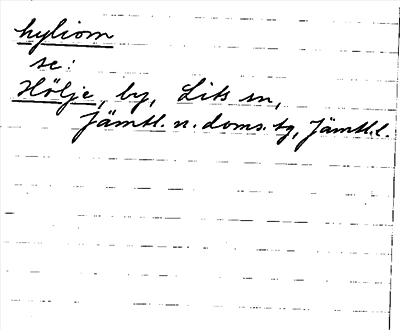 hyliom
se:
Hölje, by, Lits sn,
Jämtl. n. doms. tg, Jämtl. l.